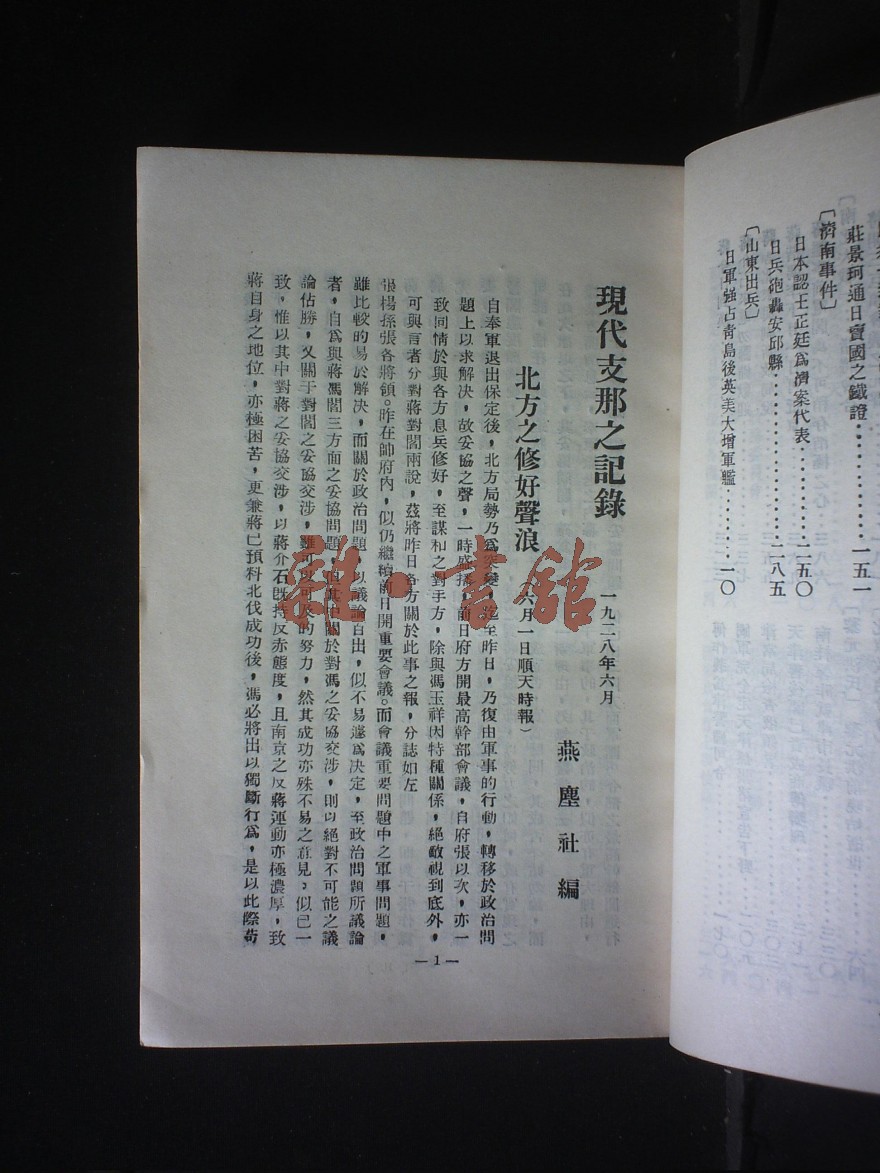 莊景珂通日賣國之鐵證……………一五一
〔濟南事件〕
日本認王正廷爲濟案代表………一五〇
日兵砲轟安邱縣……………二八五
〔山東出兵〕
日軍强占靑島後英美大增軍艦………一〇
現代支那之記錄
一九二八年六月
燕塵社編
北方之修好聲浪
六月一日順天時報）
自奉軍退出保定後，北方局勢乃爲突變，迄至昨日，乃復由軍事的行動，轉移於政治問
題上以求解決，故妥協之聲，一時盛播，前日府方開最高幹部會議，自府張以次，亦一
致同情於與各方息兵修好，至謀和之對手方，除與馮玉祥因特種關係，絕敵視到底外，
可與言者分對蔣對閻兩說，茲將昨日各方關於此事之報，分誌如左
張楊孫張各將領。昨在帥府內，似仍繼續前日開重要會議。而會議重要問題中之軍事問題，
雖比較的易於解決，而關於政治問題，以議論百出，似不易遽爲決定，至政治問題所議論
者，自爲與蔣馮閻三方面之妥協問題，但其中關於對馮之妥協交涉，則以絕對不可能之議
論佔勝，又關于對閻之妥協交涉，雖可以可及的努力，然其成功亦殊不易之意見，似已一
致，惟以其中對蔣之妥協交涉，以蔣介石旣持反赤態度，且南京之反蔣運動亦極濃厚，致
蔣自身之地位，亦極困苦，更兼蔣已預料北伐成功後，馮必將出以獨斷行爲，是以此際苟
—1—
雜·書館